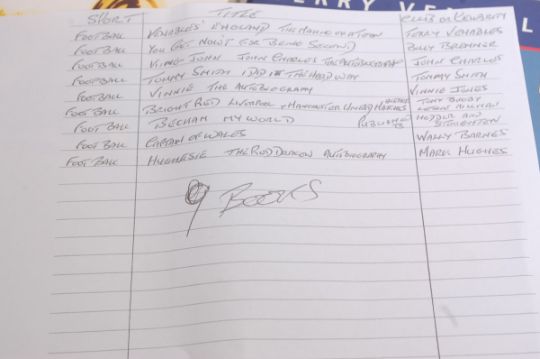 ERRY VEN L
SPORT TITLE CLUB OR CELEBRITY
FOOTBALL VENABLES' ENGLAND THE MAKING OF A TEAM TERRY VENABLES
FOOTBALL YOU GET NOWT FOR BEING SECOND BILLY BREMNER
FOOTBALL KING JOHN JOHN CHARLES THE AUTOBIOGRAPHY JOHN CHARLES
FOOTBALL TOMMY SMITH I DID IT THE HARD WAY TOMMY SMITH
FOOTBALL VINNIE THE AUTOBIOGRAPHY VINNIE JONES
FOOTBALL BRIGHT RED LIVERPOOL MANCHESTER UNITED TONY
FOOTBALL BECHAM MY WORLD PUBLISHED HODDER AND STOUGHTON
FOOTBALL CAPTAIN OF WALES WALLY BARNES
FOOTBALL HUGHESIE THE RED DRAGON AUTOBIOGRAPHY MARK HUGHES
9 BOOKS